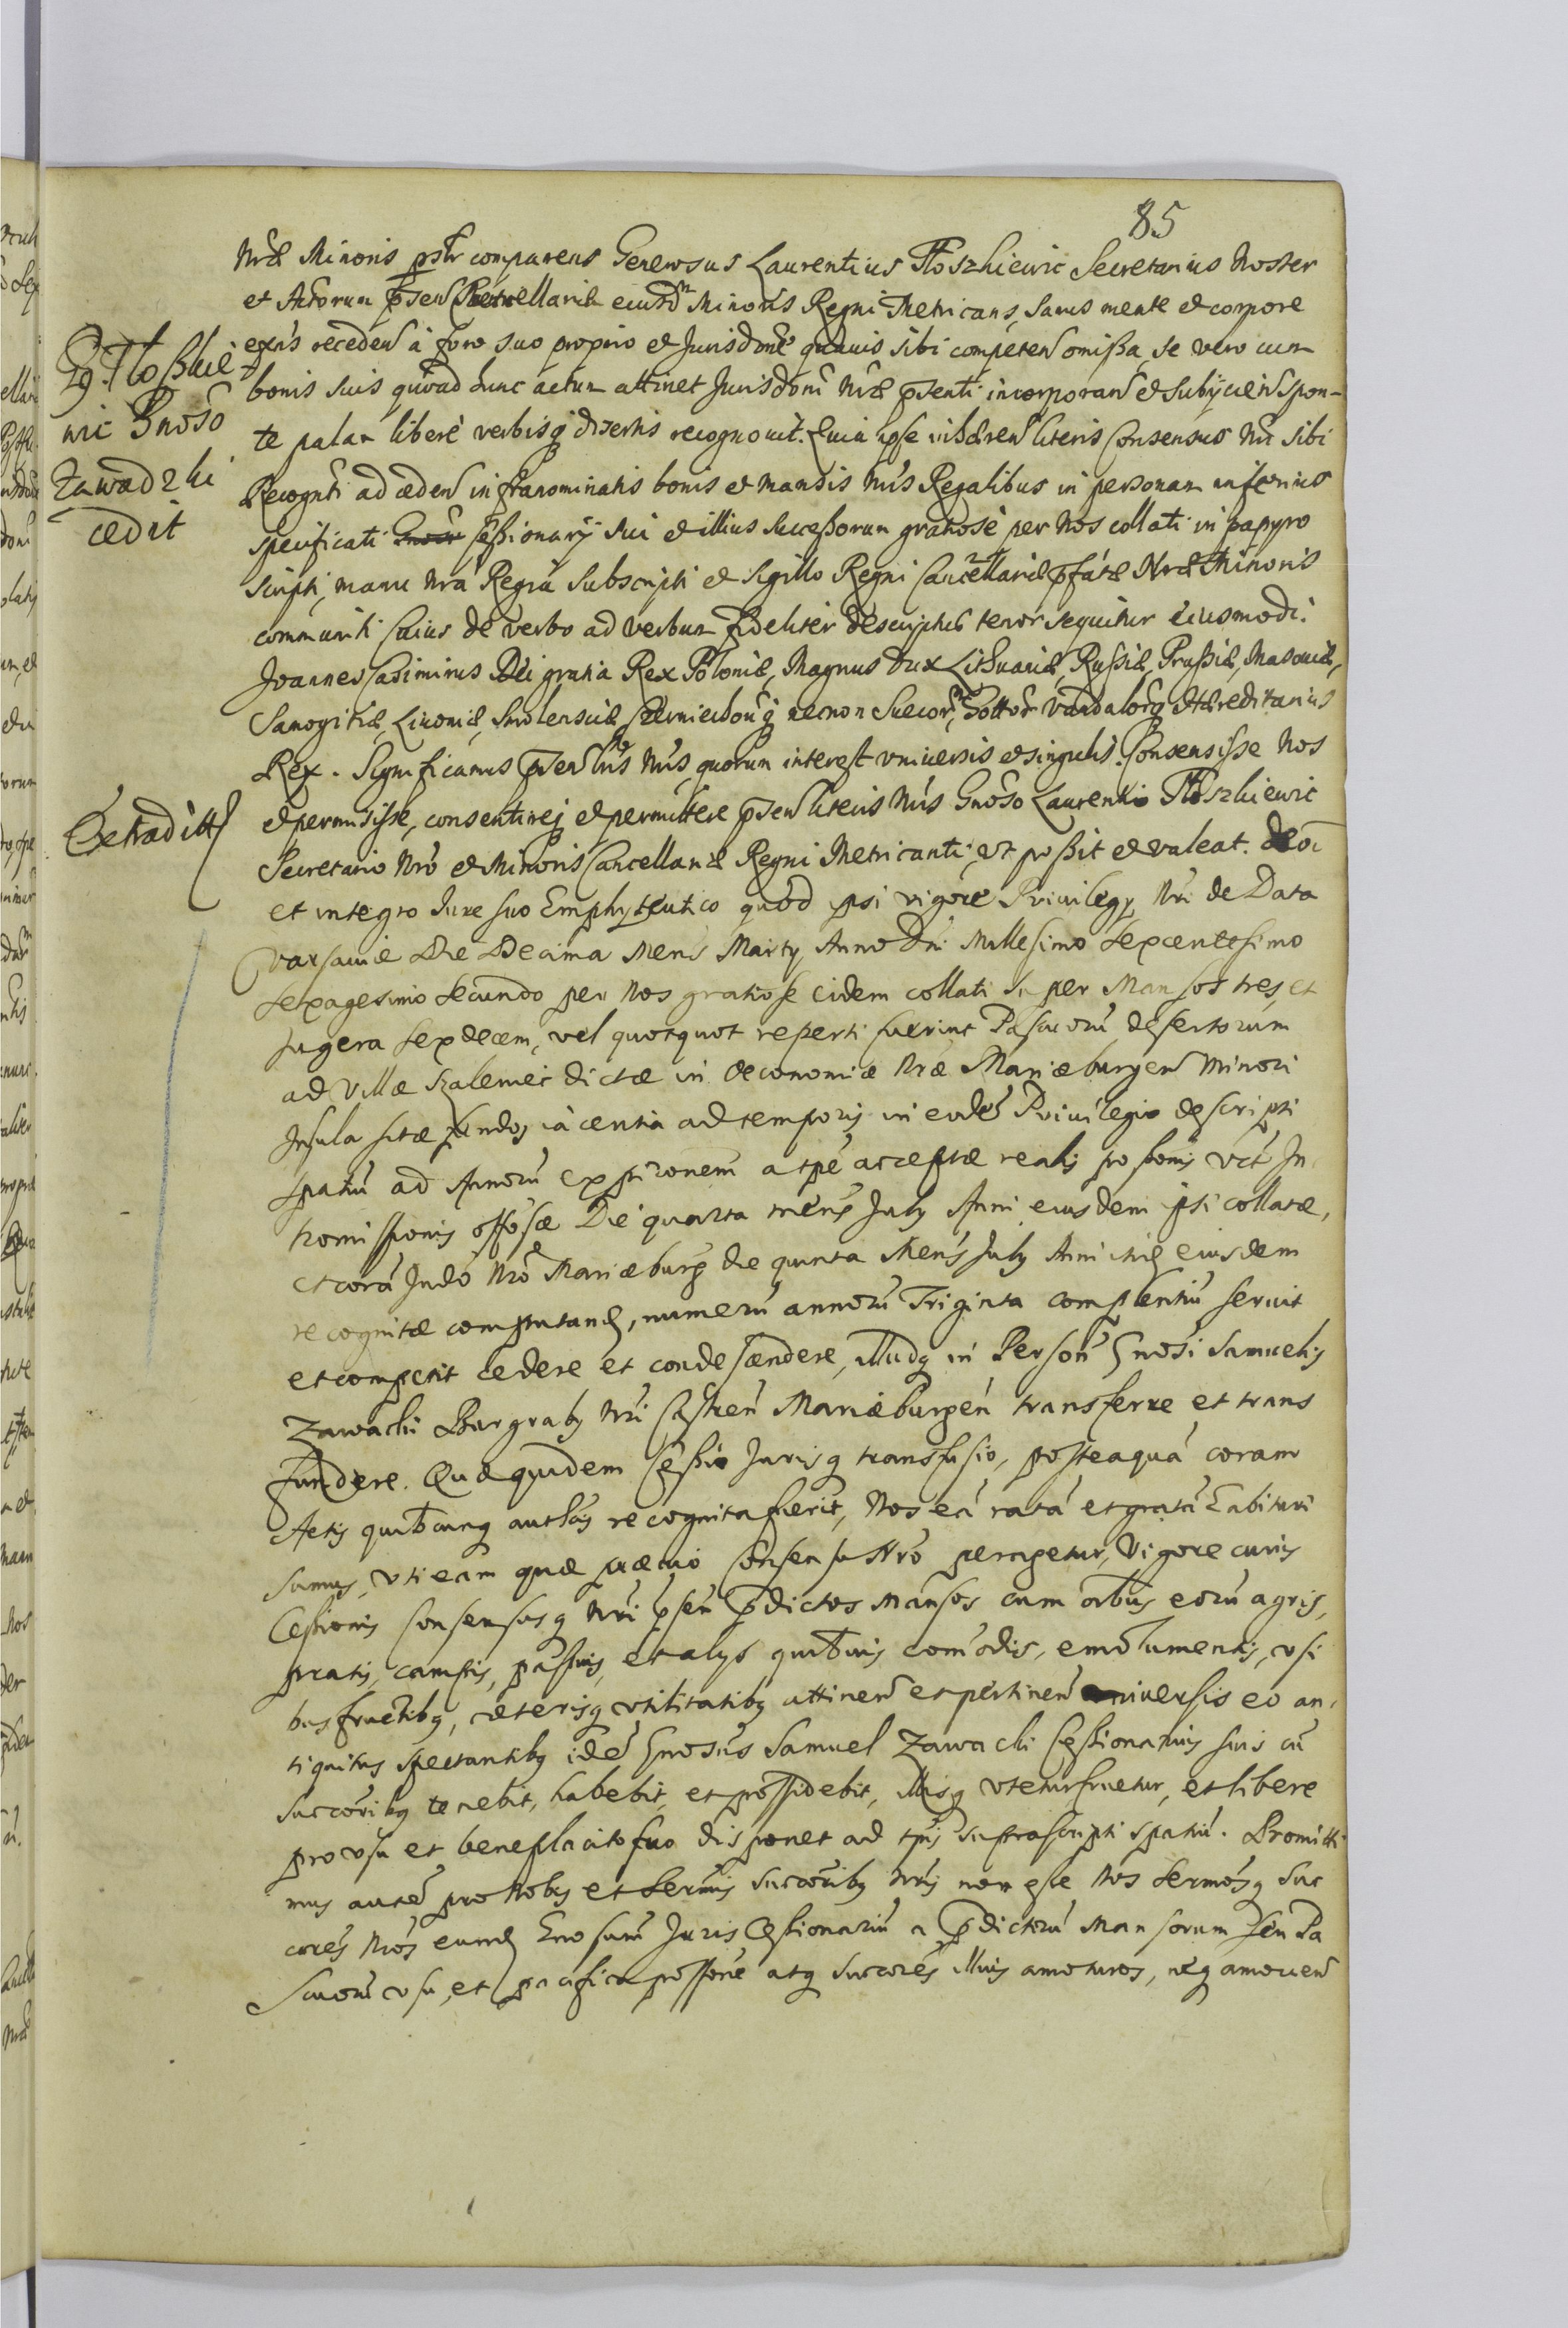 85
Nræ Minoris psltr comparens Generosus Laurentius Tłoszkiewic Secretarius Noster
et Actorum psen Cancellariæ eiusdm Minoris Regni Metricans, sanus mente et corpore
exñs receden à foro suo proprio et Jurisdone quauis sibi competen omissa, se vero cum
bonis suis quoad hunc actum attinet Jurisdoni Nræ psenti incorporan et subijcien spon-
te palam liberè verbisq disertis recognouit. Quia ipse inhæren literis Consensus Nri sibi
Recogniti ad cæden infranominatis bonis et mansis Nris Regalibus in personam inferius
specificati Cessionarij sui et illius successorum gratiosè per Nos collati in papyro
scripti, manu Nra Regia subscripti et sigillo Regni Cancellariæ pfatæ Nræ Minoris
communiti Cuius de verbo ad verbum fideliter descriptus tenor sequitur eiusmodi.
Joannes Casimirus Dei gratia Rex Poloniæ, Magnus Dux Lithuaniæ, Russiæ, Prussiæ, Masouiæ,
Samogitiæ, Liuoniæ, Smolensciæ Czerniechouq necnon Suecor, Gottor Vandalorq Hæreditarius
Rex. Significamus psen lris Nris, quorum interest vniuersis et singulis. Consensisse Nos
et permisisse, consentireq et permittere psen literis Nris Gnoso Laurentio Tłoszkiewic
Secretario Nro et Minoris Cancellariæ Regni Metricanti, vt possit et valeat. de oi
et integro Jure suo Emphyteutico quod ipsi vigore Priuilegy Nri de Data
Varsauiæ Die Decima Mens Marty Anno Dni Millesimo Sexcentesimo
Sexagesimo Secundo per Nos gratiose eidem collati super Mansos tres, et
Jugera Sexdecem, vel quotquot reperti fuerint Pascuoru desertorum
ad Villæ Szalemeic dictæ in Oeconomia Nra Mariæburgen Minori
Insula sitæ fundos iacentia ad temporis in eode Priuilegio descripti
spatiu ad Annoru expironem a tpe acceptæ realis possonis vtt In-
tromissionis offosæ Die quarta mens July Anni eiusdem ipsi collatæ,
et cora Judo Nro Mariæburg die quinta Mens July Anni itid eiusdem
recognitæ computand, numeru annoru Triginta complentiu seruit
et competit cedere et condescendere, illudq in Person Gnosi Samuelis
Zawacki Burgraby Nri Castren Mariæburgen transferre et trans
fundere. Quæ quidem Cessio Jurisq transfusio, posteaqua coram
Actis quibcunq authcis recognita fuerit, Nos ea rata et grata habituri
sumus, vti eam quæ præuio Consensu Nro peragetur, Vigore cuius
Cessionis Consensusq Nri psen pdictos Mansos cum oibus eoru agris,
pratis, campis, pascuis, et alys quibuis comodis, emolumentis, vsi
bus fructibq, cæterisq vtilitatibq attinen et pertinen vniuersis eo an-
tiquitus spectantibq idē Gnosus Samuel Zawacki Cessionarius suis cu
succoribq tenebit, habebit, et possidebit, illisq vtetur fruetur, et libere
pro vsu et beneplacito suo disponet ad tpis suprascripti spatiu. Promitti-
mus aute pro Nobis et Sermis succoribq Nris non esse Nos Sermosq Suc
cores Nros eund Gnosum Juris Cessionariu a pdictoru Mansorum seu Pa
Scuoru vsu, et pacifica possone atq succores illius amoturos, neq amouen
Tłosskie
wic Gnoso
Zawadzki
cedit
Extraditt